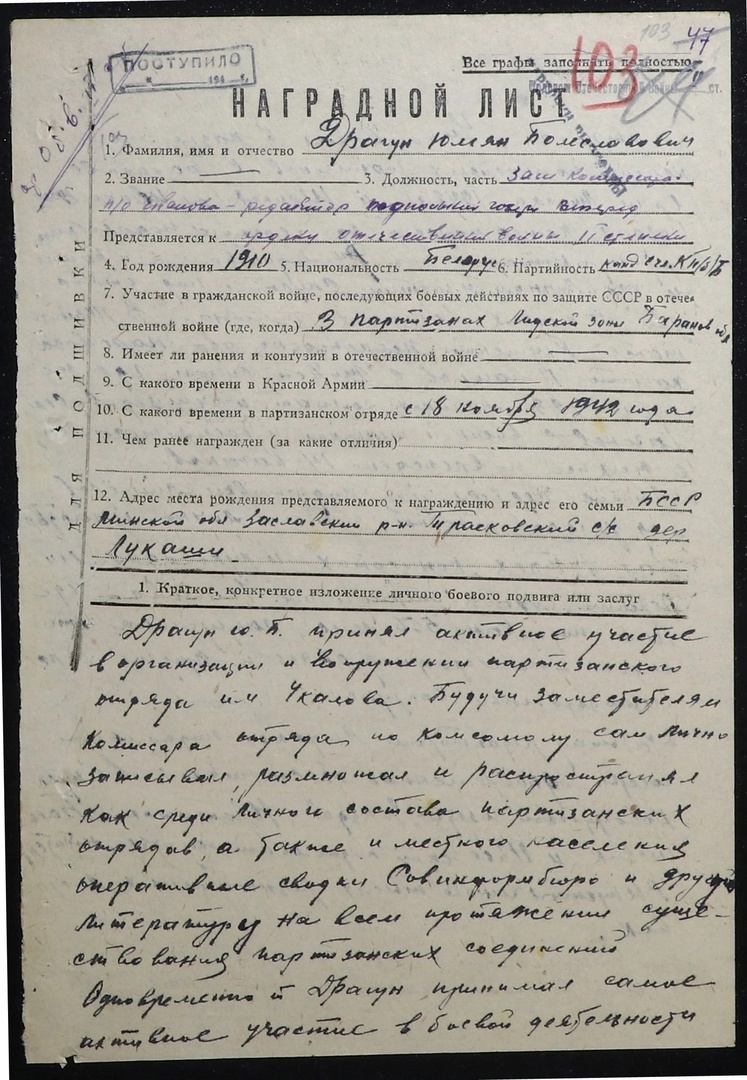 103 47
ПОСТУПИЛО
194 г.
Все графы заполнять полностью
103
НАГРАДНОЙ ЛИСТ
1. Фамилия, имя и отчество Драгун Юлиян Болеславович
2. Звание — 3. Должность, часть зам комиссара
п/о Чкалова – редактор подпольной газеты Вперед
Представляется к ордену отечественной войны II степени
4. Год рождения 1910 5. Национальность Белорус 6. Партийность канд. член КП(б)Б
7. Участие в гражданской войне, последующих боевых действиях по защите СССР в отече-
ственной войне (где, когда) В партизанах Лидской зоны Баранов. обл
8. Имеет ли ранения и контузии в отечественной войне —
9. С какого времени в Красной Армии —
10. С какого времени в партизанском отряде с 18 ноября 1942 года
11. Чем ранее награжден (за какие отличия)
12. Адрес места рождения представляемого к награждению и адрес его семьи БССР
Минской обл Заславский р-н. Трасковский с/с дер
Лукаши
ДЛЯ ПОДШИВКИ
1. Краткое, конкретное изложение личного боевого подвига или заслуг
Драгун Ю. Б. принял активное участие
в организации и вооружении партизанского
отряда им Чкалова. Будучи заместителям
комиссара отряда по комсомолу сам лично
записывал, размножал и распространял
как среди личного состава партизанских
отрядов, а также и местного населения
оперативные сводки Совинформбюро и другую
литературу на всем протяжении суще-
ствования партизанских соединений
Одновременно й Драгун принимал самое
активное участие в боевой деятельности